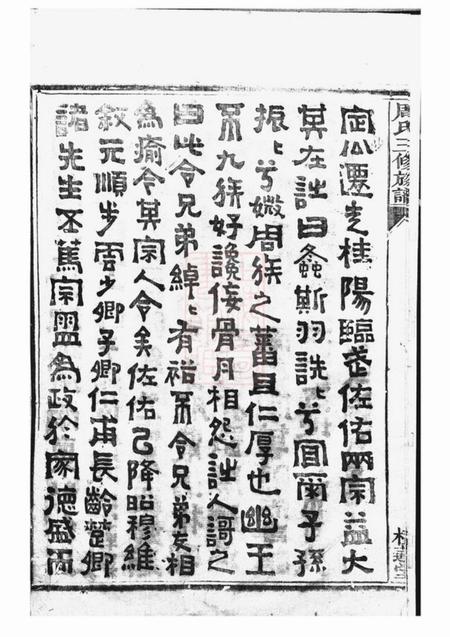 周氏三修族譜
定公遷芝桂陽臨武佐佑兩宗益大
其在詩曰螽斯羽詵〻兮宜爾子孫
振〻兮媺周族之蕃且仁厚也幽王
不九族好讒佞骨月相怨詩人謌之
曰此令兄弟綽〻有裕不令兄弟交相
為瘉今其宗人令矣佐佑己降昭穆維
敘元順步雲少卿子卿仁甫長齡楚卿
諸先生丕篤宗盟為政於家德盛而